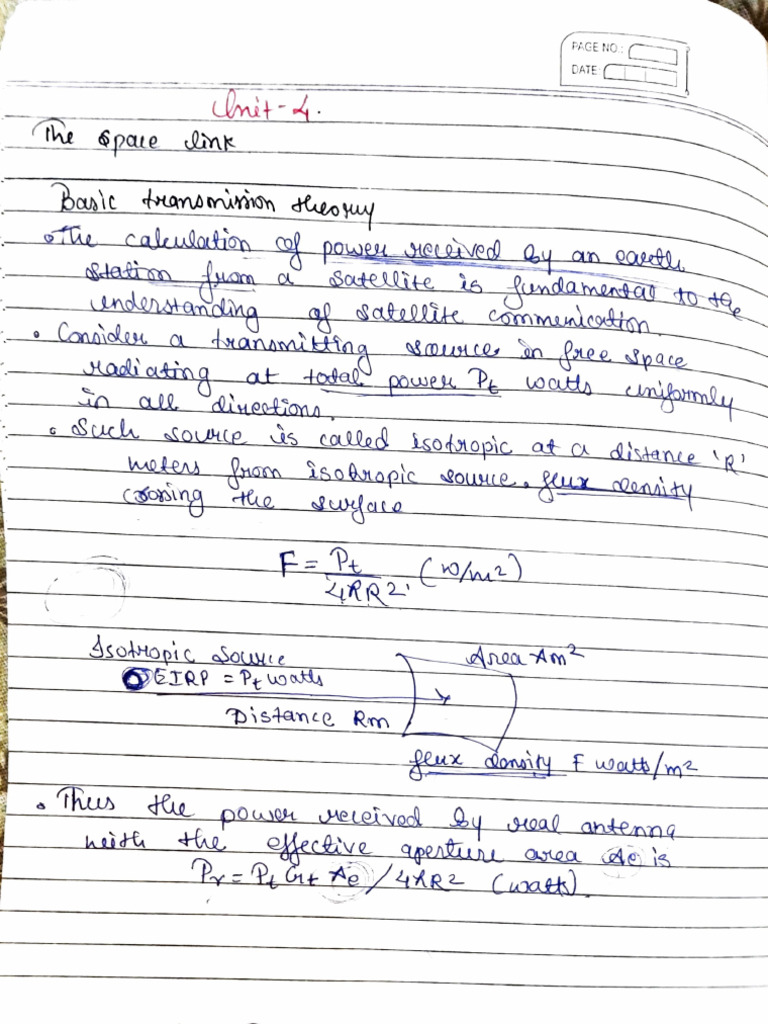 PAGE NO.:
DATE:
Unit-4.
The space link
Basic transmission theory
The calculation of power received by an earth
station from a satellite is fundamental to the
understanding of satellite communication.
Consider a transmitting source in free space
radiating at total power Pt watts uniformly
in all directions.
Such source is called isotropic at a distance 'R'
meters from isotropic source. flux density
crossing the surface
F = Pt / 4πR² (w/m²)
Isotropic Source
Area Am²
EIRP = Pt watts
Distance Rm
flux density F watts/m²
Thus the power received by real antenna
with the effective aperture area Ae is
Pr = Pt Gt Ae / 4πR² (watts).